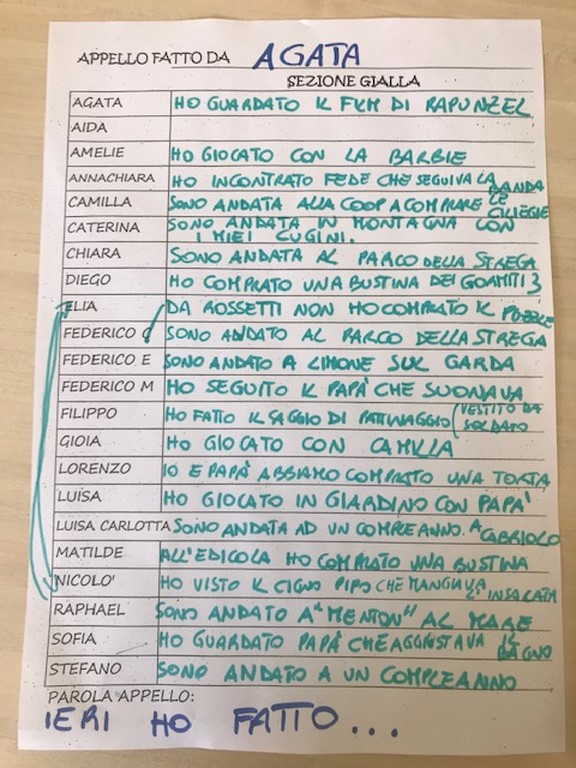 APPELLO FATTO DA AGATA
SEZIONE GIALLA
AGATA HO GUARDATO IL FILM DI RAPUNZEL
AIDA
AMELIE HO GIOCATO CON LA BARBIE
ANNACHIARA HO INCONTRATO FEDE CHE SEGUIVA LA BANDA
CAMILLA SONO ANDATA ALLA COOP A COMPRARE LE CILIEGIE
CATERINA SONO ANDATA IN MONTAGNA CON
I MIEI CUGINI.
CHIARA SONO ANDATA AL PARCO DELLA STREGA
DIEGO HO COMPRATO UNA BUSTINA DEI GORMITI 3
ELIA DA ROSSETTI NON HO COMPRATO IL PUZZLE
FEDERICO C SONO ANDATO AL PARCO DELLA STREGA
FEDERICO E SONO ANDATO A LIMONE SUL GARDA
FEDERICO M HO SEGUITO IL PAPÀ CHE SUONAVA
FILIPPO HO FATTO IL SAGGIO DI PATTINAGGIO (VESTITO DA SOLDATO
GIOIA HO GIOCATO CON CAMILLA
LORENZO IO E PAPÀ ABBIAMO COMPRATO UNA TORTA
LUISA HO GIOCATO IN GIARDINO CON PAPÀ
LUISA CARLOTTA SONO ANDATA AD UN COMPLEANNO. A GABRIOLO
MATILDE ALL'EDICOLA HO COMPRATO UNA BUSTINA
NICOLO' HO VISTO IL CIGNO PIPO CHE MANGIAVA L'INSALATA
RAPHAEL SONO ANDATO A "MENTON" AL MARE
SOFIA HO GUARDATO PAPÀ CHE AGGIUSTAVA IL BAGNO
STEFANO SONO ANDATO A UN COMPLEANNO
PAROLA APPELLO:
IERI HO FATTO...